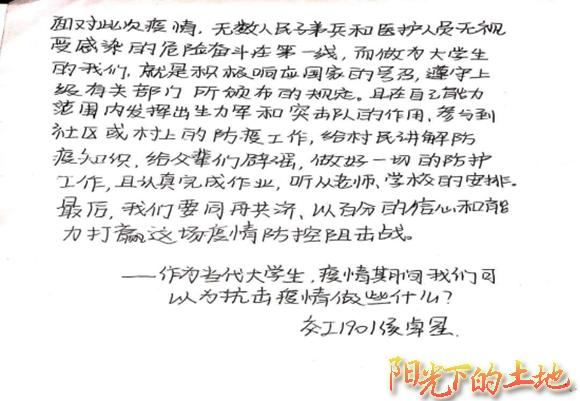 面对此次疫情，无数人民子弟兵和医护人员无视
受感染的危险奋斗在第一线，而做为大学生
的我们，就是积极响应国家的号召，遵守上
级有关部门所颁布的规定。且在自己能力
范围内发挥出生力军和突击队的作用，参与到
社区或村上的防疫工作，给村民讲解防
疫知识，给父辈们辟谣，做好一切的防护
工作，且认真完成作业，听从老师、学校的安排。
最后，我们要同舟共济、以百分的信心和能
力打赢这场疫情防控阻击战。
——作为当代大学生，疫情期间我们可
以为抗击疫情做些什么？
交工1901侯卓星.
阳光下的土地